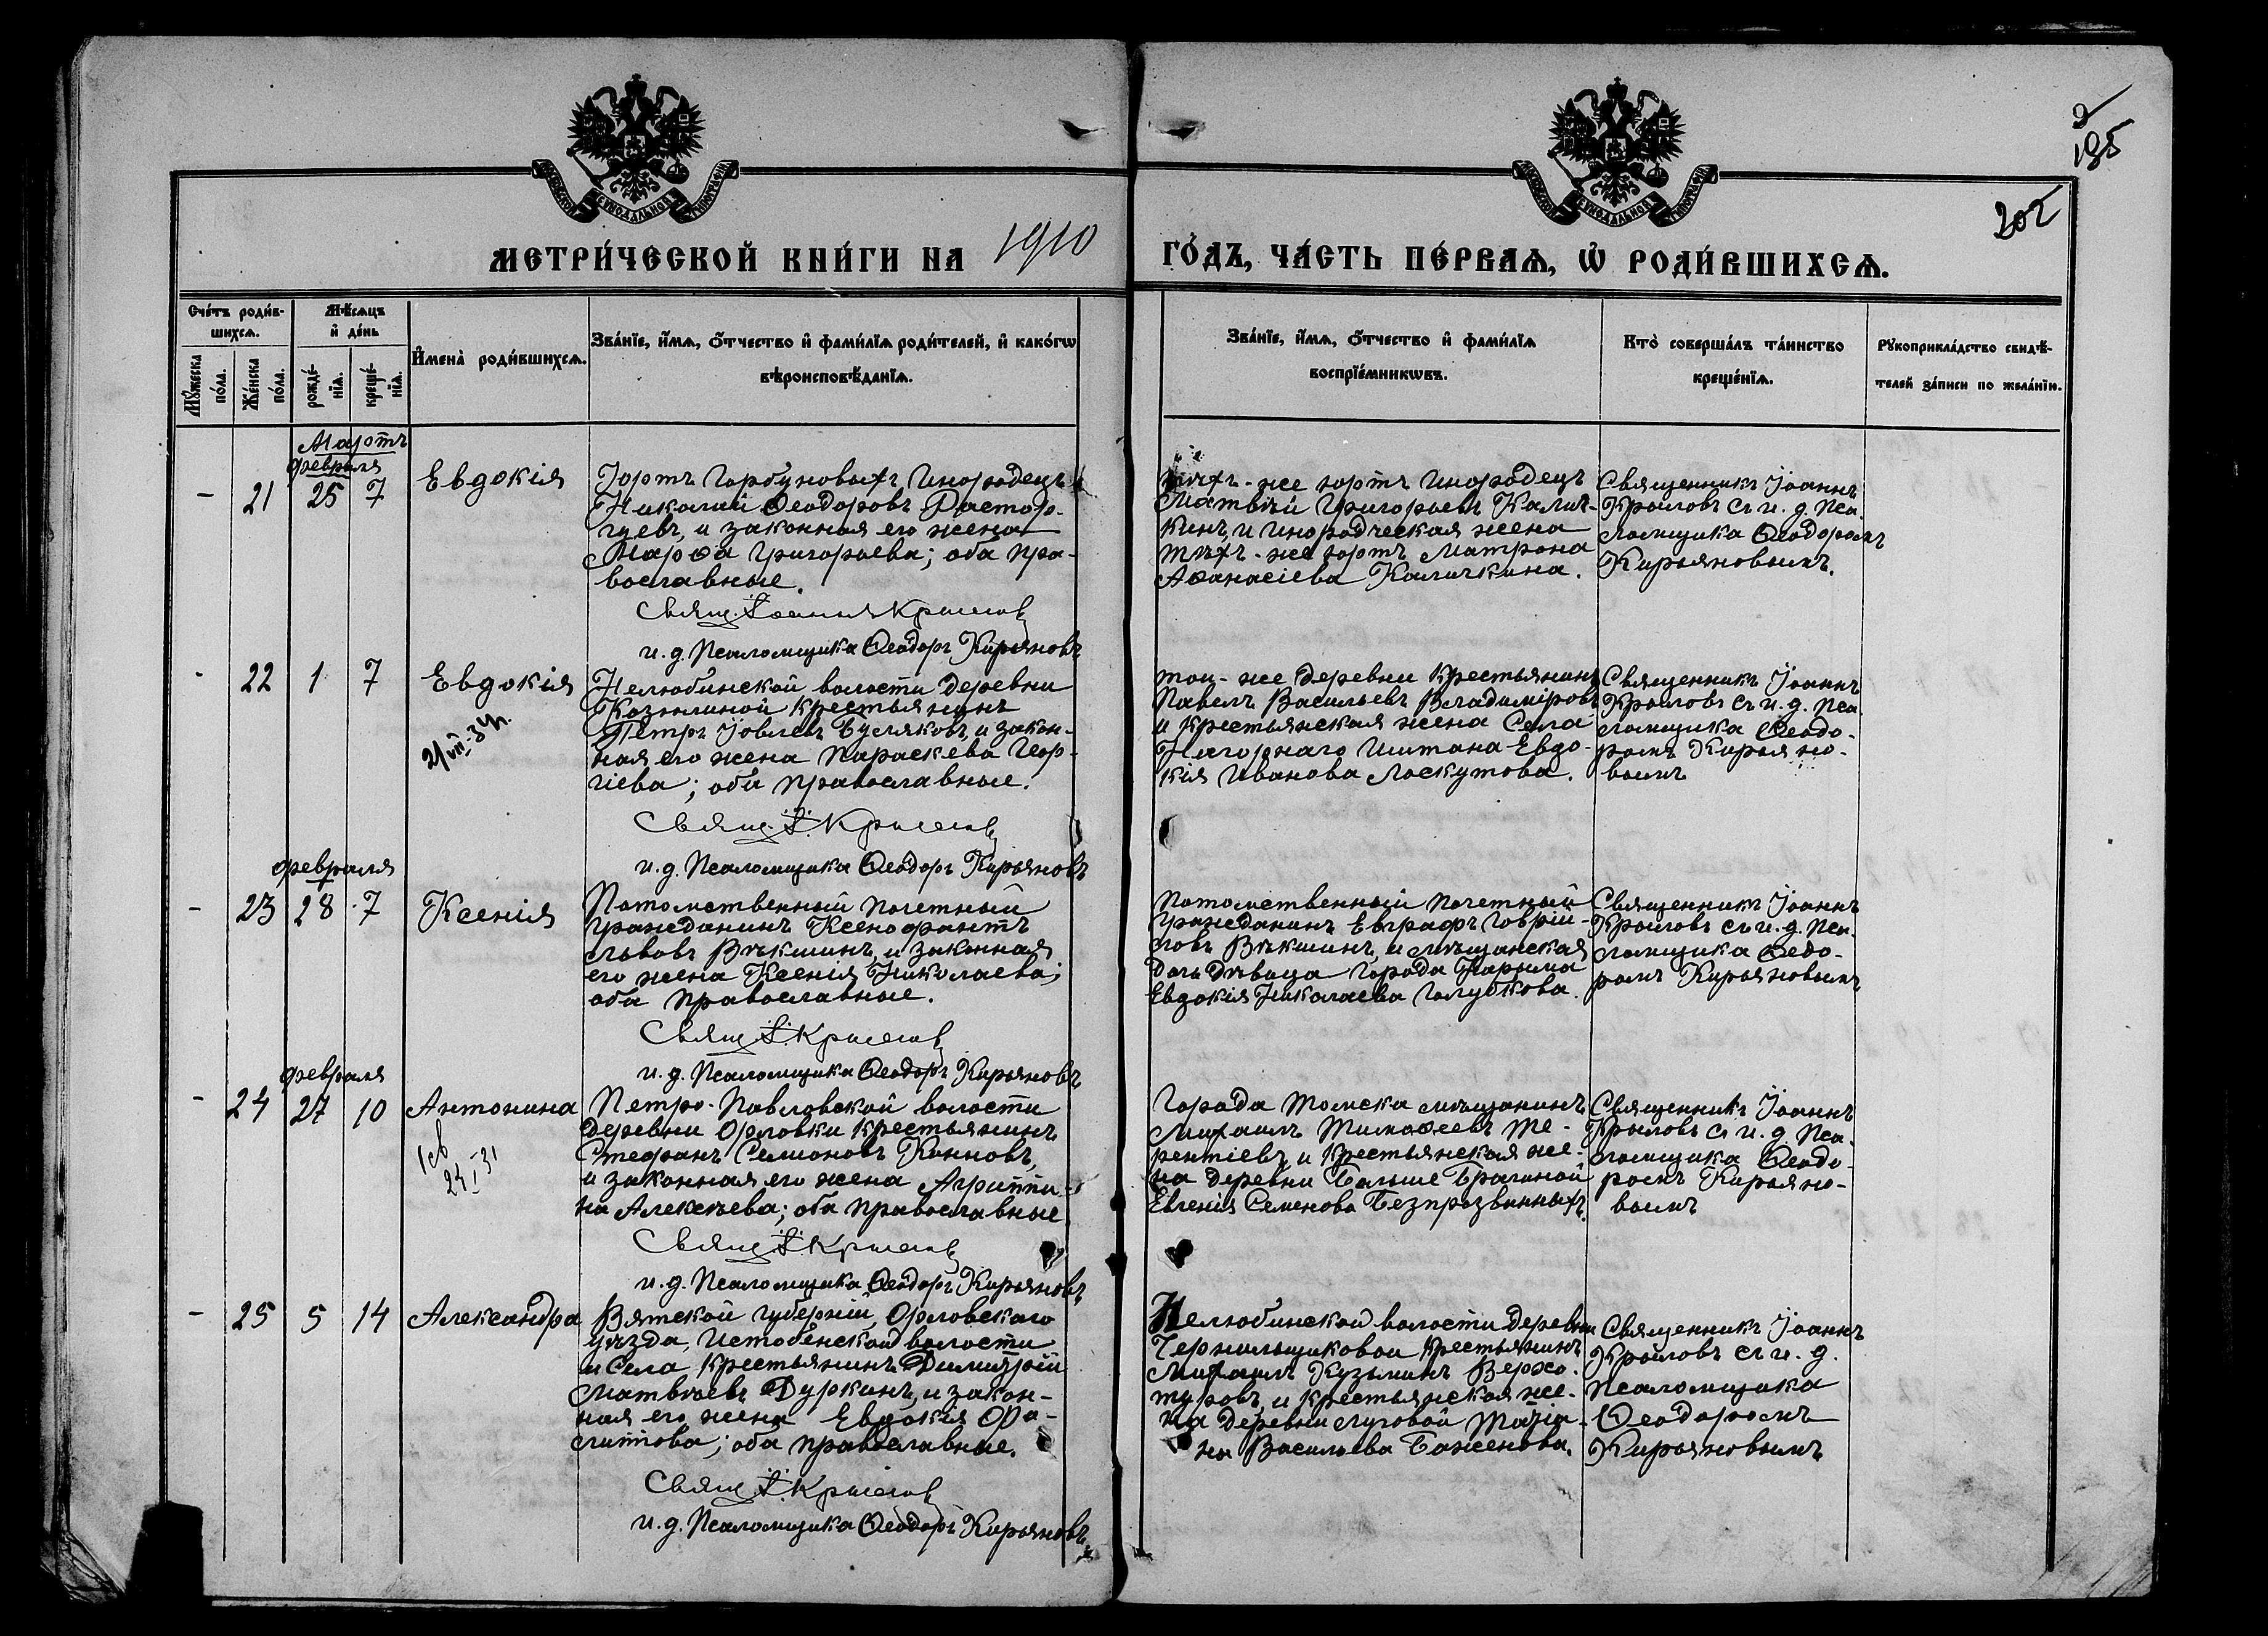 9
195
202
МОСКОВСКОЙ СѴНОДАЛЬНОЙ ТИПОГРАФІИ
МОСКОВСКОЙ СѴНОДАЛЬНОЙ ТИПОГРАФІИ
МЕТРИ́ЧЕСКОЙ КНИ́ГИ НА 1910 ГО́ДЪ, ЧА́СТЬ ПЕ́РВАѦ, Ѡ҆ РОДИ́ВШИХСѦ.
Сче́тъ роди́в-
шихсѧ.
Мꙋ́жеска
пола.
Же́нска
по́ла.
Мѣ́сѧцъ
и҆ де́нь
рожде́-
нїѧ.
креще́-
нїѧ.
И҆мена̀ роди́вшихсѧ.
Зва́нїе, и҆́мѧ, ѻ҆́тчество и҆ фами́лїѧ роди́телей, и҆ како́гѡ
вѣроисповѣ́данїѧ.
Зва́нїе, и҆́мѧ, ѻ҆́тчество и҆ фами́лїѧ
воспрїе́мникѡвъ.
Кто̀ соверша́лъ та́инство
креще́нїѧ.
Рꙋкоприкла́дство свидѣ́-
телей за́писи по жела́нїю.
Мартъ
февраля
- 21 25 7 Евдокія
Юртъ Горбуновыхъ Инородецъ
Николай Ѳеодоровъ Растор-
гуевъ, и законная его жена
Марѳа Григорьева; оба пра-
вославные.
Свящ. Іоаннъ Крылов
и. д. Псаломщика Ѳеодоръ Кирьяновъ
тѣхъ-же юртъ Инородецъ
Матвѣй Григорьевъ Калич-
кинъ, и инородческая жена
тѣхъ-же юртъ Матрона
Аѳанасіева Каличкина.
Священникъ Іоаннъ
Крыловъ съ и. д. Пса-
ломщика Ѳеодоромъ
Кирьяновымъ.
- 22 1 7 Евдокія
Нелюбинской волости деревни
Козюлиной крестьянинъ
Петръ Іовлевъ Бусляковъ, и закон-
ная его жена Параскева Геор-
гіева; оба православные.
Свящ. І. Крылов
и. д. Псаломщика Ѳеодоръ Кирьяновъ
той-же деревни крестьянинъ
Павелъ Васильевъ Владиміровъ
и крестьянская жена Села
Нагорнаго Иштана Евдо-
кія Иванова Лоскутова.
Священникъ Іоаннъ
Крыловъ съ и. д. Пса-
ломщика Ѳеодо-
ромъ Кирьяно-
вымъ
февраля
- 23 28 7 Ксенія
Потомственный почетный
гражданинъ Ксенофонтъ
Львовъ Вѣкшинъ, и законная
его жена Ксенія Николаева;
оба православные.
Свящ. І. Крылов
и. д. Псаломщика Ѳеодоръ Кирьяновъ
Потомственный почетный
гражданинъ Евграфъ Гавріи-
ловъ Вѣкшинъ, и мѣщанская
дочь дѣвица города Нарыма
Евдокія Николаева Голубкова.
Священникъ Іоаннъ
Крыловъ съ и. д. Пса-
ломщика Ѳедо-
ромъ Кирьяновымъ
февраля
- 24 27 10 Антонина
24 I 31
Петро-Павловской волости
деревни Орловки крестьянинъ
Стефанъ Семионовъ Конновъ,
и законная его жена Агриппи-
на Алексѣева; оба православные.
Свящ. І. Крылов
и. д. Псаломщика Ѳеодоръ Кирьяновъ
Города Томска мѣщанинъ
Михаилъ Тимоѳеевъ Те-
рентіевъ, и крестьянская же-
на деревни Больше Брагиной
Евгенія Семенова Безпрозванныхъ.
Священникъ Іоаннъ
Крыловъ съ и. д. Пса-
ломщика Ѳеодо-
ромъ Кирьяно-
вымъ
- 25 5 14 Александра
Вятской губерніи, Орловскаго
уѣзда, Истобенской волости
и Села крестьянинъ Димитрій
Матвѣевъ Дуркинъ, и закон-
ная его жена Евдокія Фро-
литтова; оба православные.
Свящ. І. Крылов
и. д. Псаломщика Ѳеодоръ Кирьяновъ
Нелюбинской волости деревни
Чернильщиковой крестьянинъ
Михаилъ Кузьминъ Верхо-
туровъ, и крестьянская же-
на деревни Луговой Татіа-
на Васильева Баженова.
Священникъ Іоаннъ
Крыловъ съ и. д.
Псаломщика
Ѳеодоромъ
Кирьяновымъ